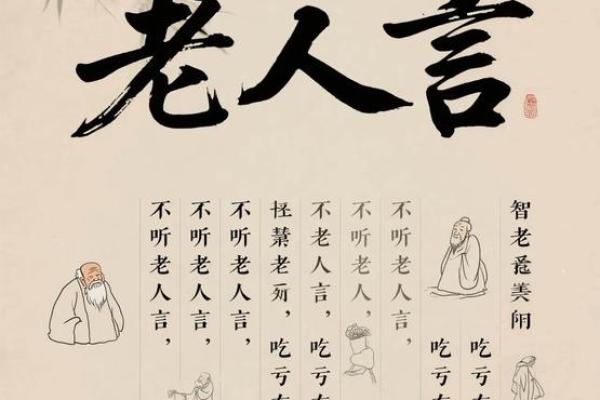 老人言
智老美
吃亏
吃亏
不听老人言，
不听老人，
不老人言，吃亏
老，吃亏
不听老人言，
不听老人言，
不听老人言，